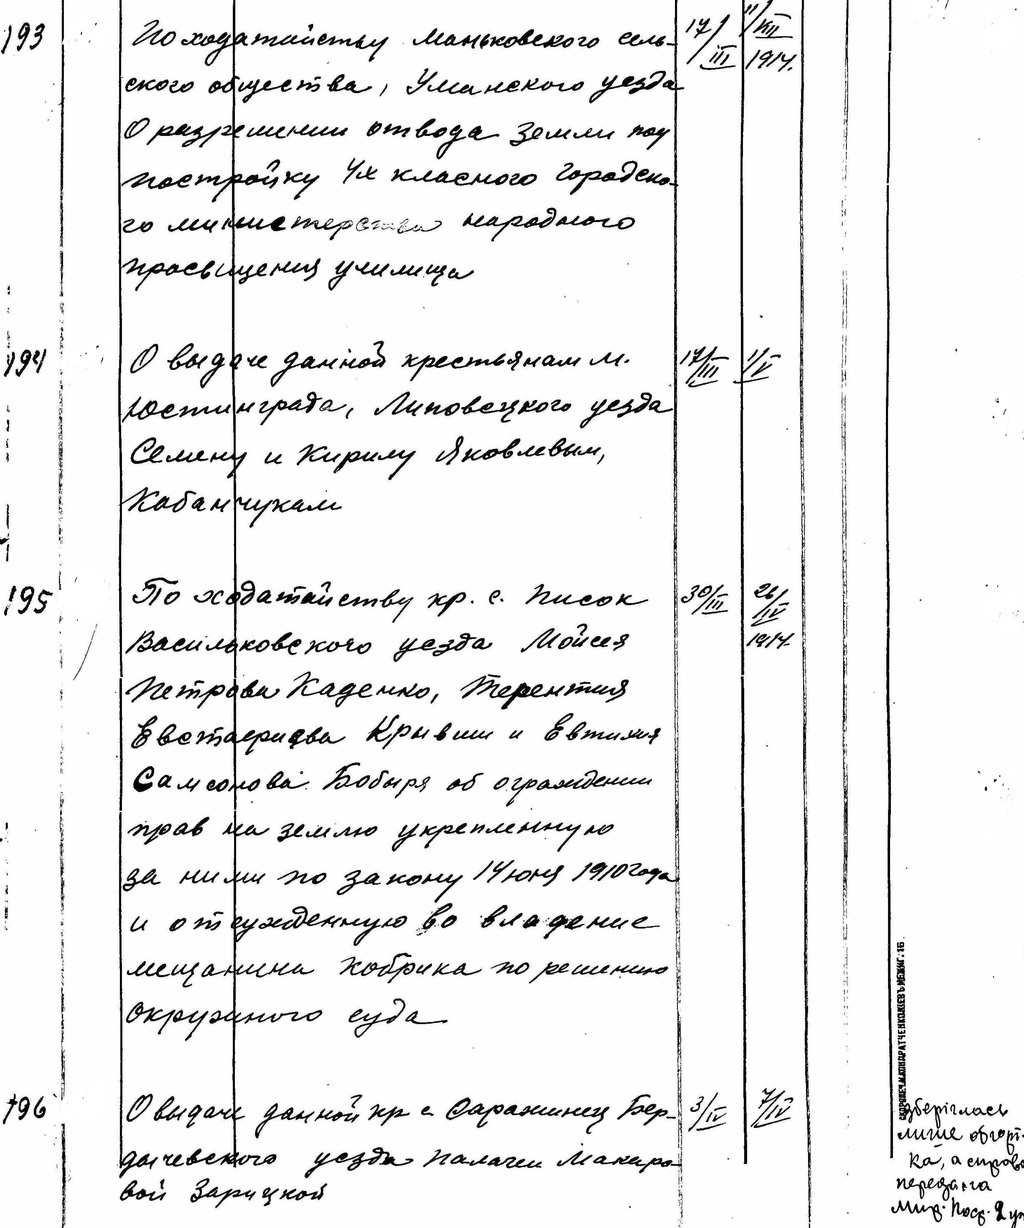 193
По ходатайству Маньковского сель-
ского общества, Уманского уезда
О разрешении отвода земли под
постройку 4х класного городско-
го министерства народного
просвещения училища
17/III
11/VII
1914.
194
О выдаче данной крестьянам м.
Юстинграда, Липовецкого уезда
Семену и Кирилу Яковлевым,
Кабанчукам
17/III
11/V
195
По ходатайству кр. с. Писок
Васильковского уезда Мойсея
Петрова Каденко, Терентия
Евстафиева Крывши и Евтихия
Самсонова Бобыря об ограждении
прав на землю укрепленную
за ними по закону 14 июня 1910 года
и отсужденную во владение
мещанина Кобрика по решению
Окружного суда
30/III
26/IV
1914.
196
О выдаче данной кр с Саражинец Бер-
дычевского уезда Палагеи Макаро
вой Зарицкой
3/IV
7/IV
зберіглась
лише обгорт-
ка, а справа
передана
Мир. Поср. 2 уч